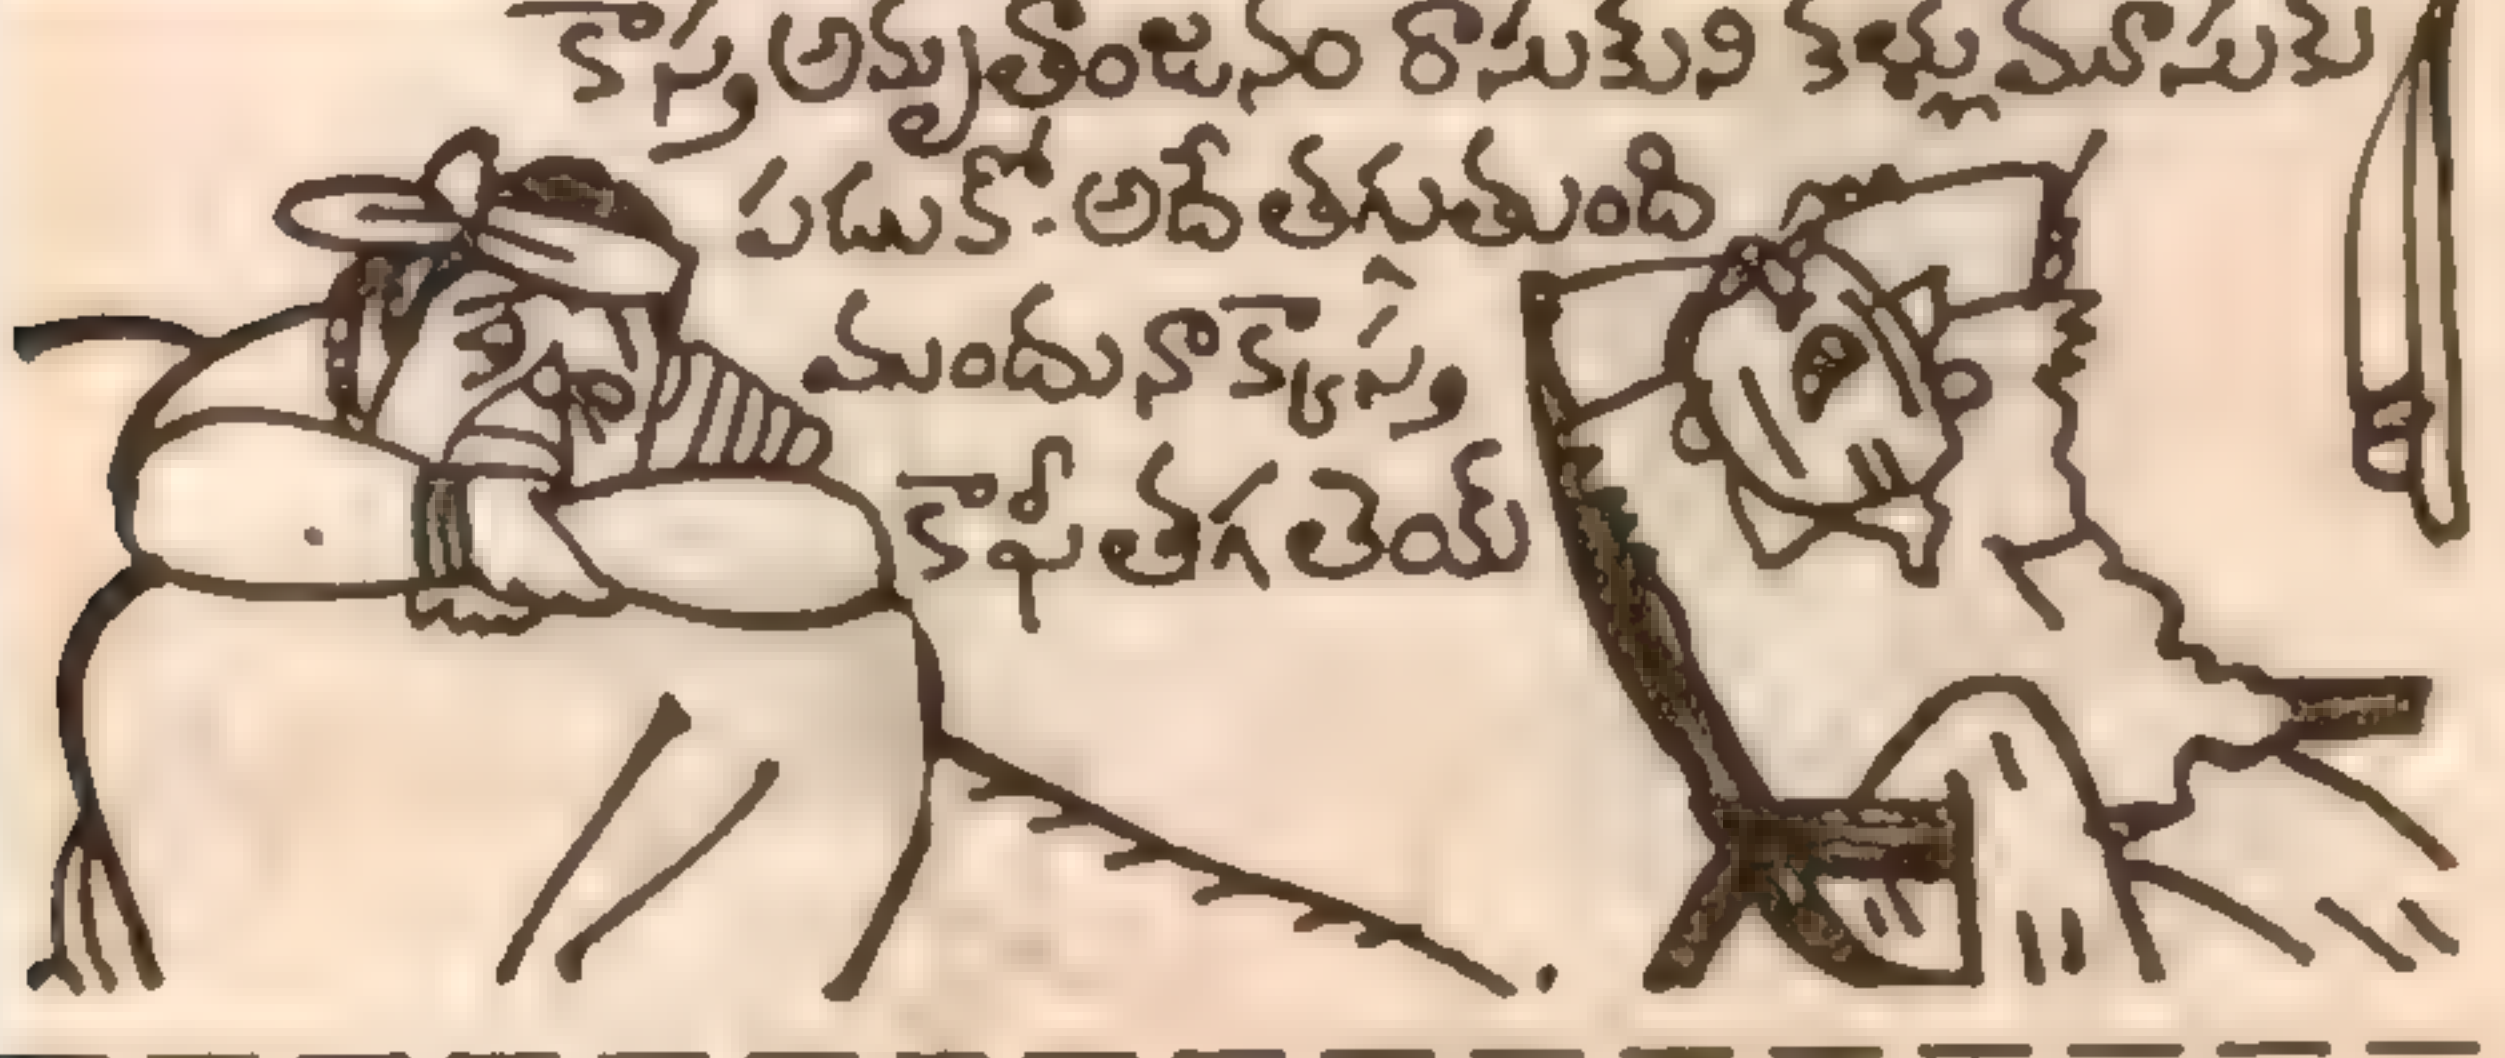 కాస్త అమృతాంజనం రాసుకుని కళ్ళు మూసుకు
పడుకో. అదే తగ్గుతుంది
ముందు నాక్కాస్త
కాఫీ తగలెయ్